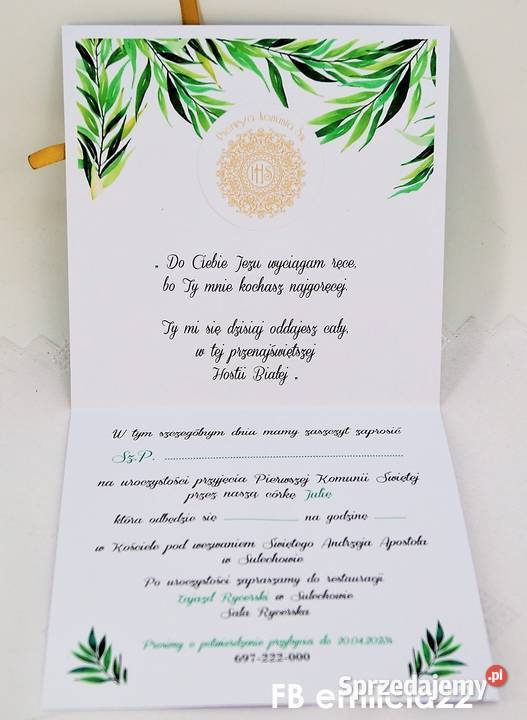 Pierwsza Komunia Św.
IHS
„ Do Ciebie Jezu wyciągam ręce,
bo Ty mnie kochasz najgoręcej.
Ty mi się dzisiaj oddajesz cały,
w tej przenajświętszej
Hostii Białej „
W tym szczególnym dniu mamy zaszczyt zaprosić
Sz.P. ........................................
na uroczystości przyjęcia Pierwszej Komunii Świętej
przez naszą córkę Julię
która odbędzie się __________ na godzinę _____
w Kościele pod wezwaniem Świętego Andrzeja Apostoła
w Sulechowie
Po uroczystości zapraszamy do restauracji
Zajazd Rycerski w Sulechowie
Sala Rycerska
Prosimy o potwierdzenie przybycia do
697-222-000
FB emilcia22
Sprzedajemy.pl